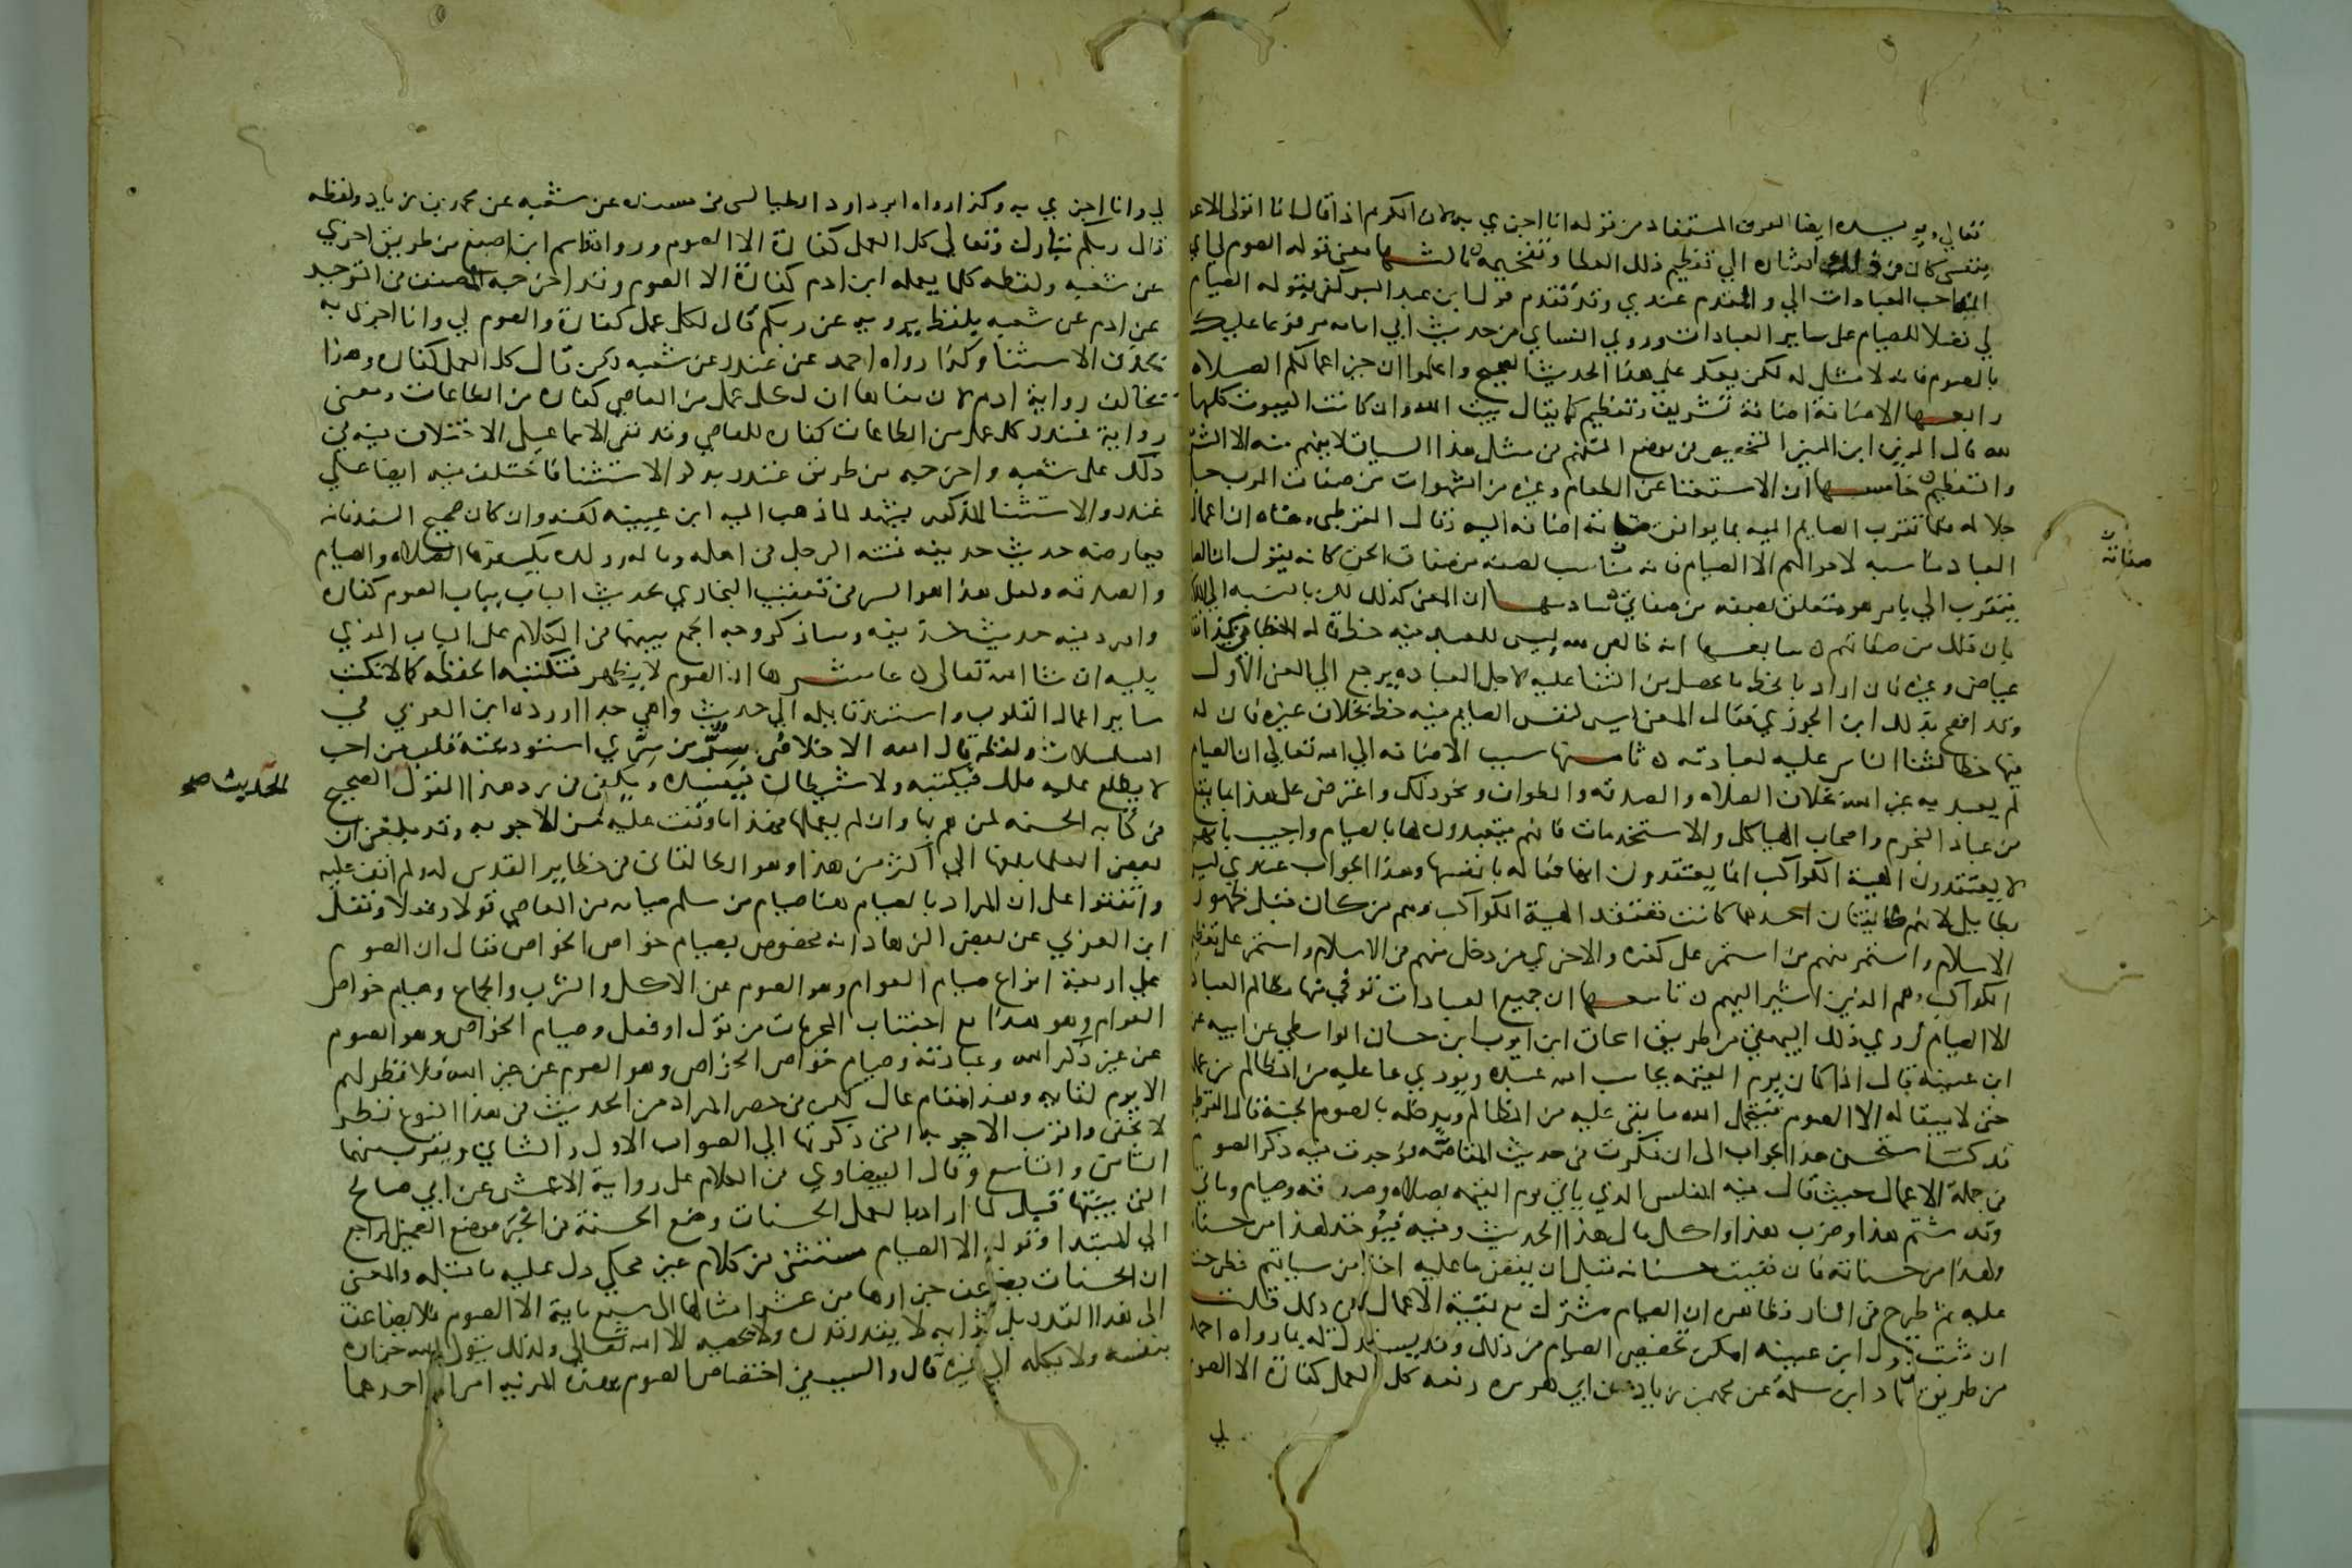 تعالى ويويده ايضا العرف المستفاد من قوله انا اجزي به لان الكريم اذا قال انا اتولى الاعطا
بنفسي كان في ذلك اشاره الي تعظيم ذلك العطا وتفخيمه ثالثها معني قوله الصوم لي اي
انه احب العبادات الي والمقدم عندي وقد تقدم قول ابن عبد البر كفي بقوله الصيام
لي فضلا للصيام على ساير العبادات وروي النساي من حديث ابي امامه مرفوعا عليك
بالصوم فانه لا مثل له لكن يعكر علي هذا الحديث الصحيح واعلموا ان خير اعمالكم الصلاه
رابعها الاضافة اضافة تشريف وتعظيم كما يقال بيت الله وان كانت البيوت كلها
لله قال الزين ابن المنير التخصيص في موضع التعميم في مثل هذا السياق لا يفهم منه الا التشر
والتعظيم خامسها ان الاستغنا عن الطعام وغيره من الشهوات من صفات الرب جل
جلاله فلما تقرب الصايم اليه بما يوافق صفاته اضافه اليه وقال القرطبي معناه ان اعمال
صفاته
العباد مناسبه لاحوالهم الا الصيام فانه مناسب لصفه من صفات الحق كانه يقول ان الصا
يتقرب الي بامر هو متعلق بصفه من صفاتي سادسها ان المعني كذلك لكن بالنسبه الي الملا
بان ذلك من صفاتهم سابعها انه خالص لله ليس للعبد فيه حظ قاله الخطابي هكذا نقله
عياض وغيره فان اراد بالحظ ما يحصل من الثنا عليه لاجل العباده يرجع الي المعني الاول
وقد افصح بذلك ابن الجوزي فقال المعني ليس لنفس الصايم فيه حظ بخلاف غيره فان له
فيها حظا لثنا الناس عليه لعبادته ثامنها سبب الاضافه الي الله تعالي ان الصيام
لم يعبد به غير الله بخلاف الصلاه والصدقه والطواف ونحو ذلك واعترض على هذا بما يقع
من عباد النجوم واصحاب الهياكل والاستخدمات فانهم يتعبدون لها بالصيام واجيب بانهم
لا يعتقدون الهية الكواكب انما يعتقدون انها فعاله بانفسها وهذا الجواب عندي ليس
بطايل لانهم طايفتان احدهما كانت تعتقد الهية الكواكب وهم من كان قبل ظهور
الاسلام واستمر منهم من استمر على كفره والاخري من دخل منهم في الاسلام واستمر على تعظيم
الكواكب وهم الذين اشير اليهم تاسعها ان جميع العبادات توفي منها مظالم العباد
الا الصيام روي ذلك البيهقي من طريق اسحاق ابن ايوب ابن حسان الواسطي عن ابيه عن
ابن عيينه قال اذا كان يوم القيمه يحاسب الله عبده ويودي ما عليه من المظالم من عمله
حتى لا يبقا له الا الصوم فيتحمل الله ما بقي عليه من المظالم ويدخله بالصوم الجنة قال القرطبي
قد كنت استحسن هذا الجواب الى ان فكرت في حديث المقاصه فوجدت فيه ذكر الصوم
في جملة الاعمال حيث قال فيه المفلس الذي ياتي يوم القيمه بصلاه وصدقه وصيام وياتي
وقد شتم هذا وضرب هذا واكل مال هذا الحديث وفيه فيوخذ لهذا من حسناته
ولهذا من حسناته فان فنيت حسناته قبل ان يقضي ما عليه اخذ من سياتهم فطرحت
عليه ثم طرح في النار فظاهره ان الصيام مشترك مع بقية الاعمال في ذلك قلت
ان ثبت قول ابن عيينه امكن تخصيص الصيام من ذلك وقد يستدل له بما رواه احمد
من طريق حماد ابن سلمة عن محمد بن زياد عن ابي هريره رفعه كل العمل كفارة الا الصوم
لي
لي وانا اجزي به وكذا رواه ابو داود الطيالسي في مسنده عن شعبه عن محمد بن زياد ولفظه
قال ربكم تبارك وتعالي كل العمل كفارة الا الصوم ورواه قاسم ابن اصبغ من طريق اخري
عن شعبه ولفظه كلما يعمله ابن ادم كفارة الا الصوم وقد اخرجه المصنف في التوحيد
عن ادم عن شعبه بلفظ يرويه عن ربكم قال لكل عمل كفارة والصوم لي وانا اجزي به
بحذف الاستثنا وكذا رواه احمد عن غندر عن شعبه ذكره قال كل العمل كفاره وهذا
يخالف رواية ادم لان معناها ان لكل عمل من المعاصي كفاره من الطاعات ومعنى
رواية غندر كل عمل من الطاعات كفاره للمعاصي وقد بين الاسماعيلي الاختلاف فيه في
ذلك على شعبه واخرجه من طريق غندر بذكر الاستثنا فاختلف فيه ايضا علي
غندر والاستثنا المذكور يشهد لما ذهب اليه ابن عيينه لكنه وان كان صحيح السند فانه
يعارضه حديث حذيفه فتنه الرجل في اهله وماله وولده يكفرها الصلاه والصيام
والصدقه ولعل هذا هو السر في تعقيب البخاري بحديث الباب بباب الصوم كفاره
واورد فيه حديث حذيفه وساذكر وجه الجمع بينهما في الكلام على الباب الذي
يليه ان شا الله تعالى عاشرها ان الصوم لا يظهر فتكتبه الحفظه كما لا تكتب
ساير اعمال القلوب واستند قايله الي حديث واهي جدا اورده ابن العربي في
المسلسلات ولفظه قال الله الاخلاص سر من سري استودعته قلب من احب
لا يطلع عليه ملك فيكتبه ولا شيطان فيفسده ويكفي في رد هذا القول الحديث الصحيح
الحديث صح
في كتابه الحسنه لمن هم بها وان لم يعملها فهذا ما وقفت عليه من الاجوبه وقد بلغني ان
بعض العلما بلغها الي اكثر من هذا وهو الطالقاني في حظاير القدس له ولم اقف عليه
واتفقوا على ان المراد بالصيام هنا صيام من سلم صيامه من المعاصي قولا وفعلا ونقل
ابن العربي عن بعض الزهاد انه مخصوص بصيام خواص الخواص فقال ان الصوم
علي اربعة انواع صيام العوام وهو الصوم عن الاكل والشرب والجماع وصيام خواص
العوام وهو هذا مع اجتناب المحرمات من قول او فعل وصيام الخواص وهو الصوم
عن غير ذكر الله وعبادته وصيام خواص الخواص وهو الصوم عن غير الله فلا فطر لهم
الا يوم لقايه وهذا مقام عال لكن في حصر المراد من الحديث في هذا النوع نظر
لا يخفى واقرب الاجوبه التي ذكرتها الي الصواب الاول والثاني ويقرب منهما
الثامن والتاسع وقال البيضاوي في الكلام على رواية الاعمش عن ابي صالح
التي بينتها قبل لما اراد بالعمل الحسنات وضع الحسنة في الخبر موضع الضمير الراجع
الي المبتدا وقوله الا الصيام مستثنى من كلام غير محكي دل عليه ما قبله والمعنى
ان الحسنات يضاعف جزاوها من عشر امثالها الى سبع ماية الا الصوم فلا يضاعف
الى هذا القدر بل ثوابه لا يقدر قدره ولا يحصيه الا الله تعالي ولذلك يتولى الله جزاه
بنفسه ولا يكله الي غيره قال والسبب في اختصاص الصوم بهذه المزيه امران احدهما